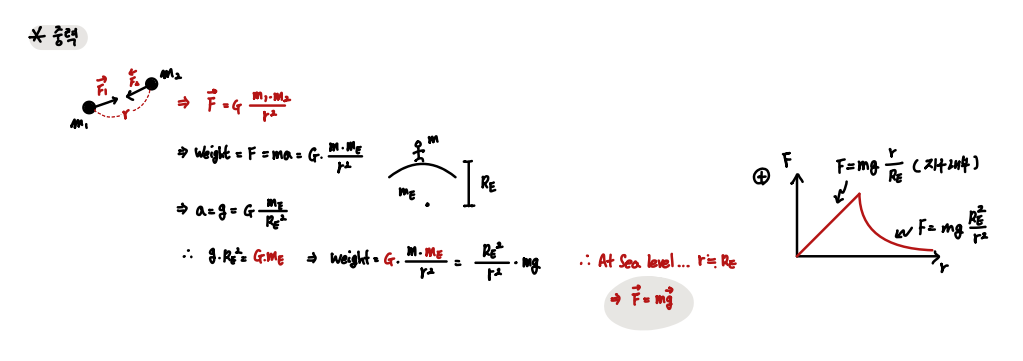 * 중력
F₁ F₂ m₂
m₁ r
⇒ F = G m₁·m₂ / r²
⇒ Weight = F = ma = G· m·m_E / r²
m
m_E R_E
⇒ a = g = G m_E / R_E²
∴ g·R_E² = G·m_E ⇒ Weight = G· m·m_E / r² = R_E² / r² · mg
∴ At Sea level... r ≒ R_E
⇒ F = mg
⊕ F F = mg r / R_E (지구내부)
F = mg R_E² / r²
r